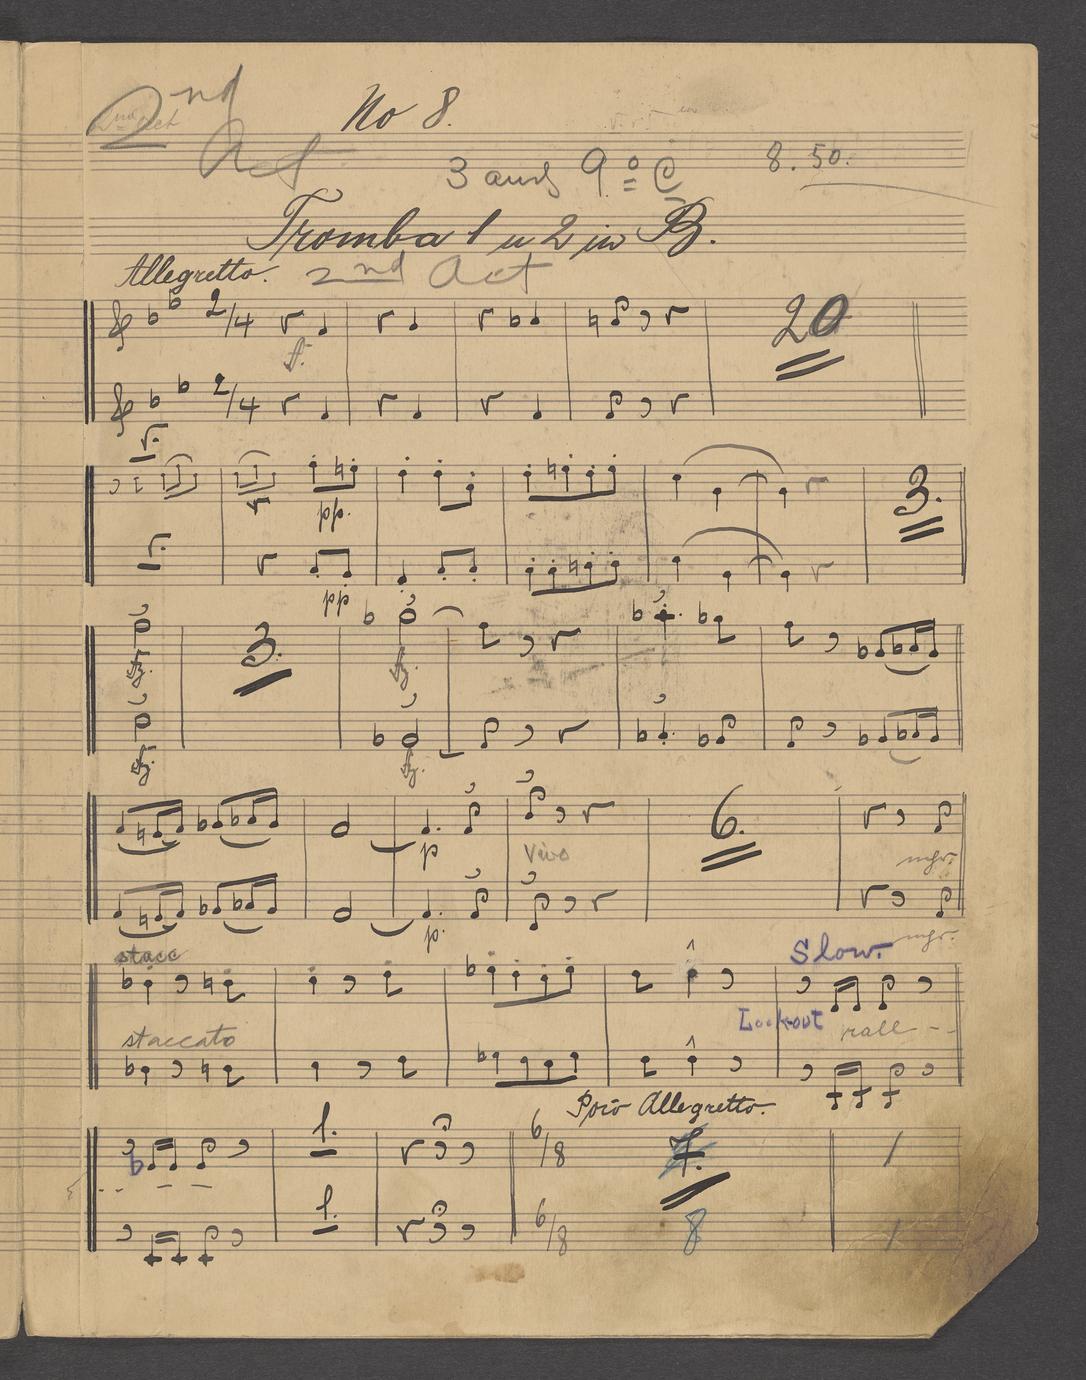 2nd
Act
No 8.
8.50.
Tromba 1 u 2 in B.
Allegretto. 2nd Act
2/4
20
2/4
pp.
3.
pp
3.
fz. fz.
fz. fz.
p
Vivo
6.
p.
stacc
Slow.
Lookout rall - -
staccato
Poco Allegretto.
1. 6/8 7.
1. 6/8 8